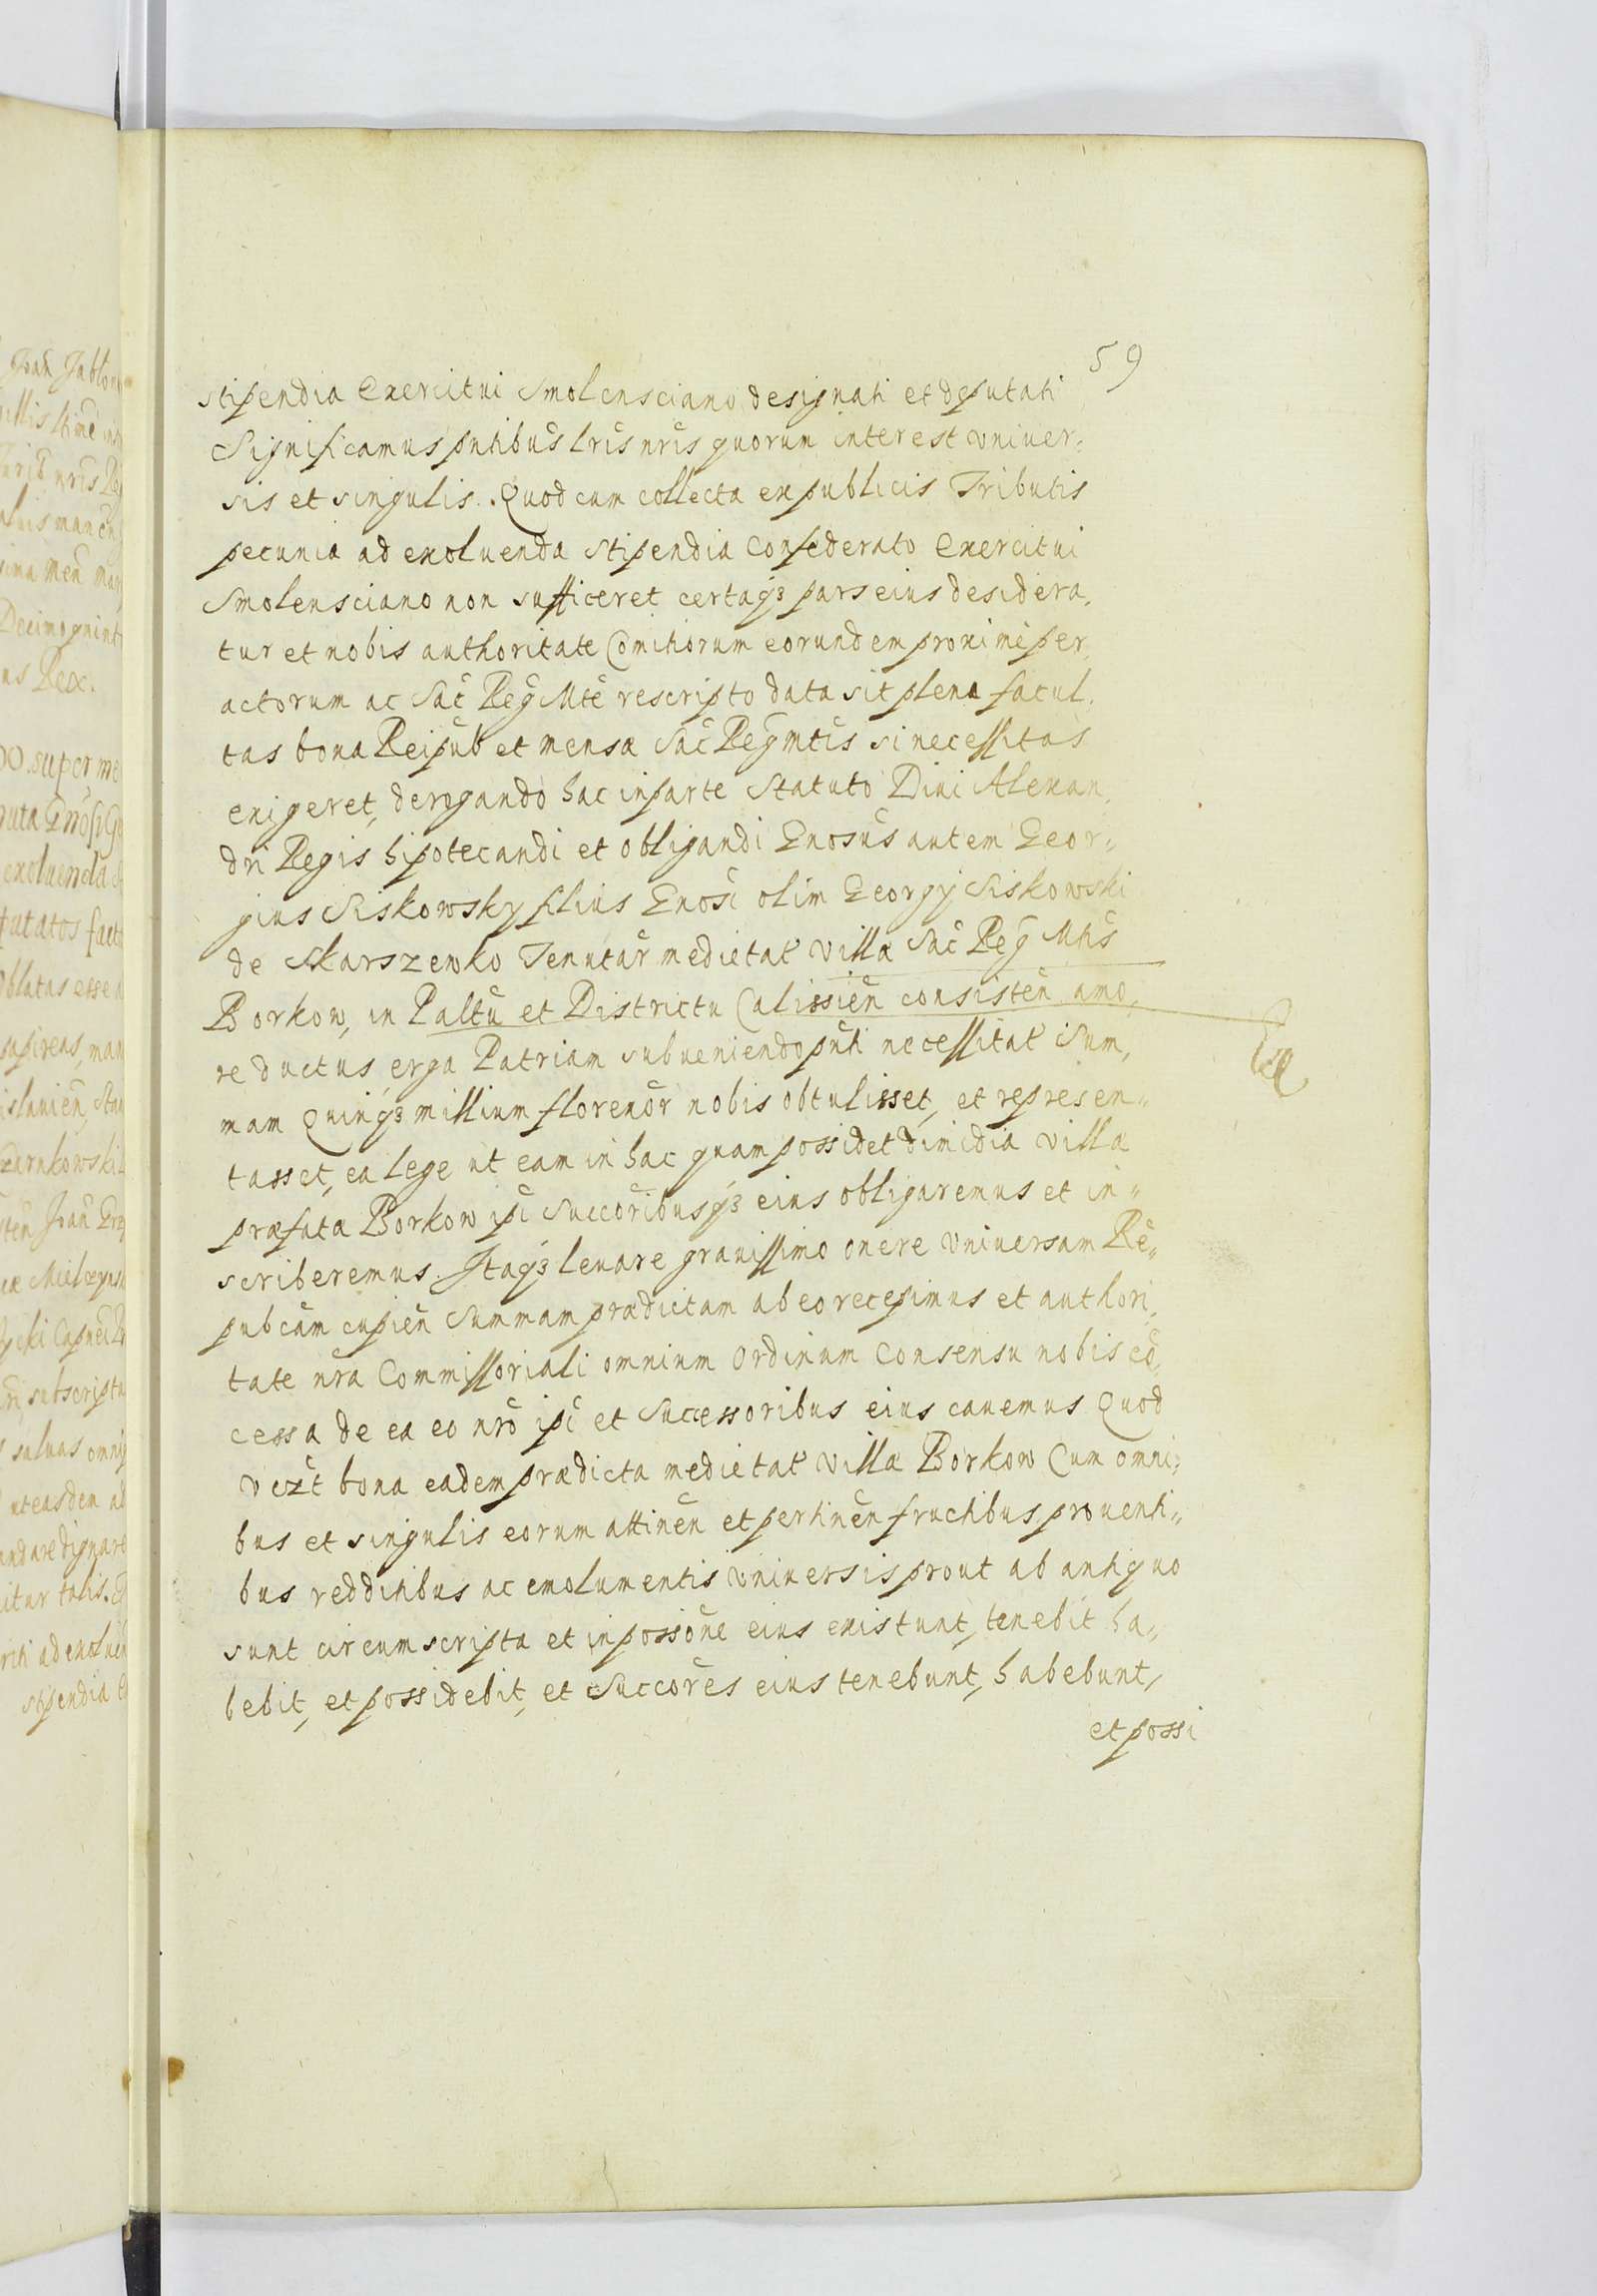 59
stipendia Exercitui Smolensciano designati et deputati
Significamus pntibus lris nris quorum interest vniuer„
sis et singulis. Quod cum collecta ex publicis Tributis
pecunia ad exoluenda stipendia Confederato Exercitui
Smolensciano non sufficeret certaqꝫ pars eius desidera„
tur et nobis authoritate Comitiorum eorundem proximè per„
actorum ac Sac Reg Mtē rescripto data sit plena facul„
tas bona Reipub et mensæ Sac Reg mtis si necessitas
exigeret, derogando hac in parte Statuto Diui Alexan„
dri Regis hipotecandi et obligandi Gnosus autem Geor„
gius Siskowsky filius Gnosi olim Georgÿ Siskowski
de Skarszewko Tenutar medietat villæ Sac Reg Mtis
Borkow, in Paltu et Districtu Calissien consisten amo„
re ductus erga Patriam subueniendo pnti necessitat Sum„
mam Quinqꝫ millium florenor nobis obtulisset, et represen„
tasset, ea lege ut eam in hac quam possidet dimidia villa
præfata Borkow ipi Succoribusqꝫ eius obligaremus et in„
scriberemus. Itaqꝫ leuare grauissimo onere vniuersam Re„
pubcam cupien Summam prædictam ab eo recepimus et authori„
tate nra Commissoriali omnium Ordinum Consensu nobis cō„
cessa de ea eo nro ipi et Successoribus eius cauemus Quod
vezt bona eadem prædicta medietat villæ Borkow Cum omni„
bus et singulis eorum attinen et pertinen fructibus prouenti„
bus redditibus ac emolumentis vniuersis prout ab antiquo
sunt circumscripta et in possione eius existunt, tenebit ha„
bebit, et possidebit, et Succores eius tenebunt, habebunt,
et possi